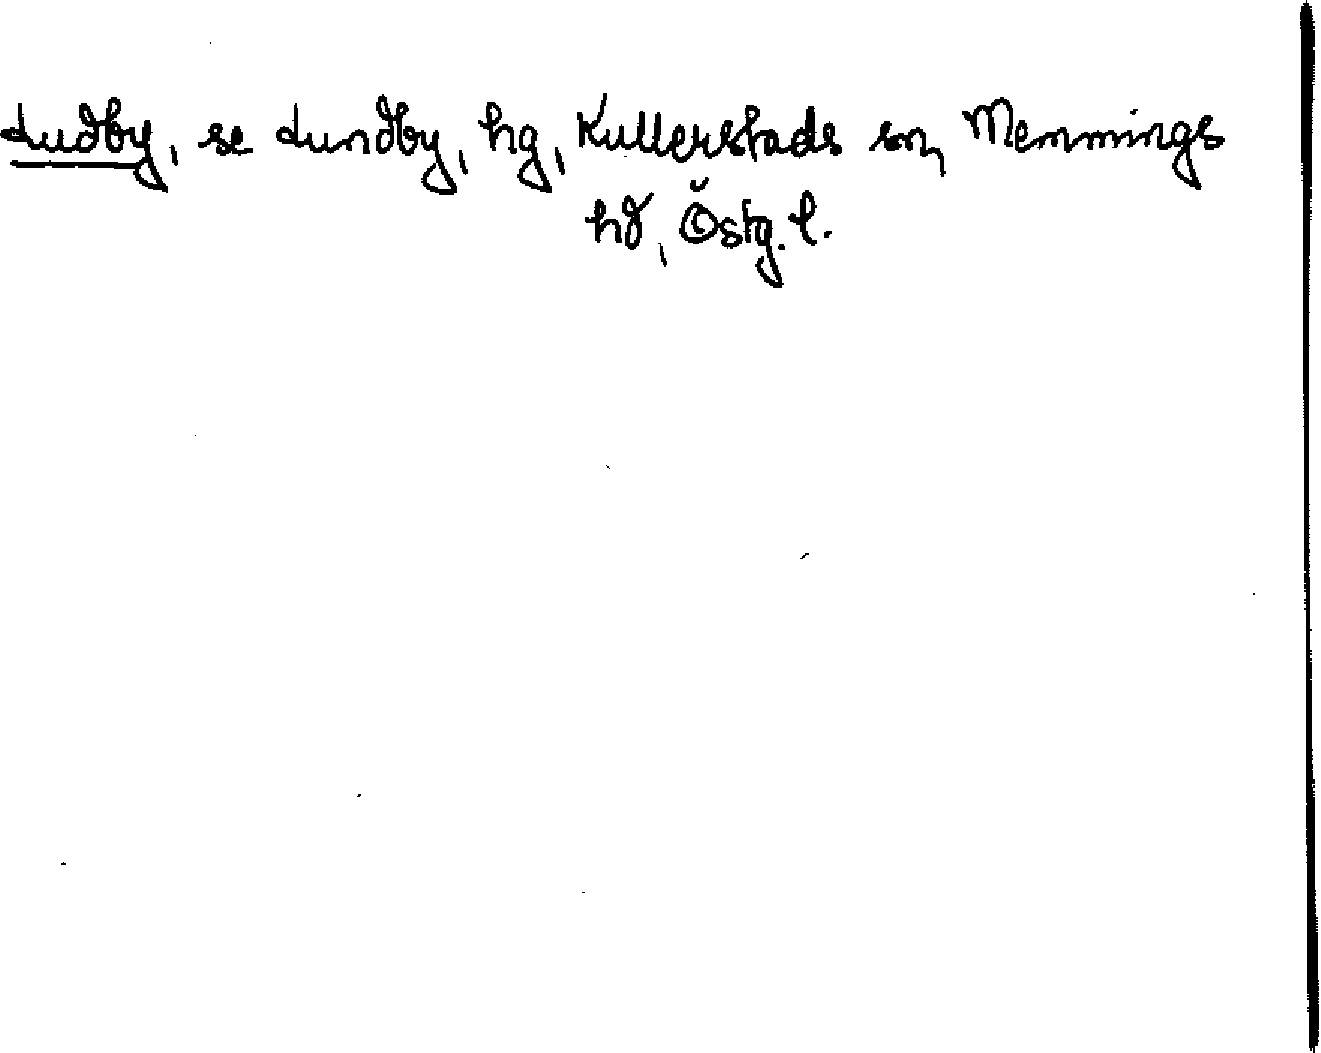 Ludby, se Lundby, hg, Kullerstads sn, Memmings
hd, Östg. l.